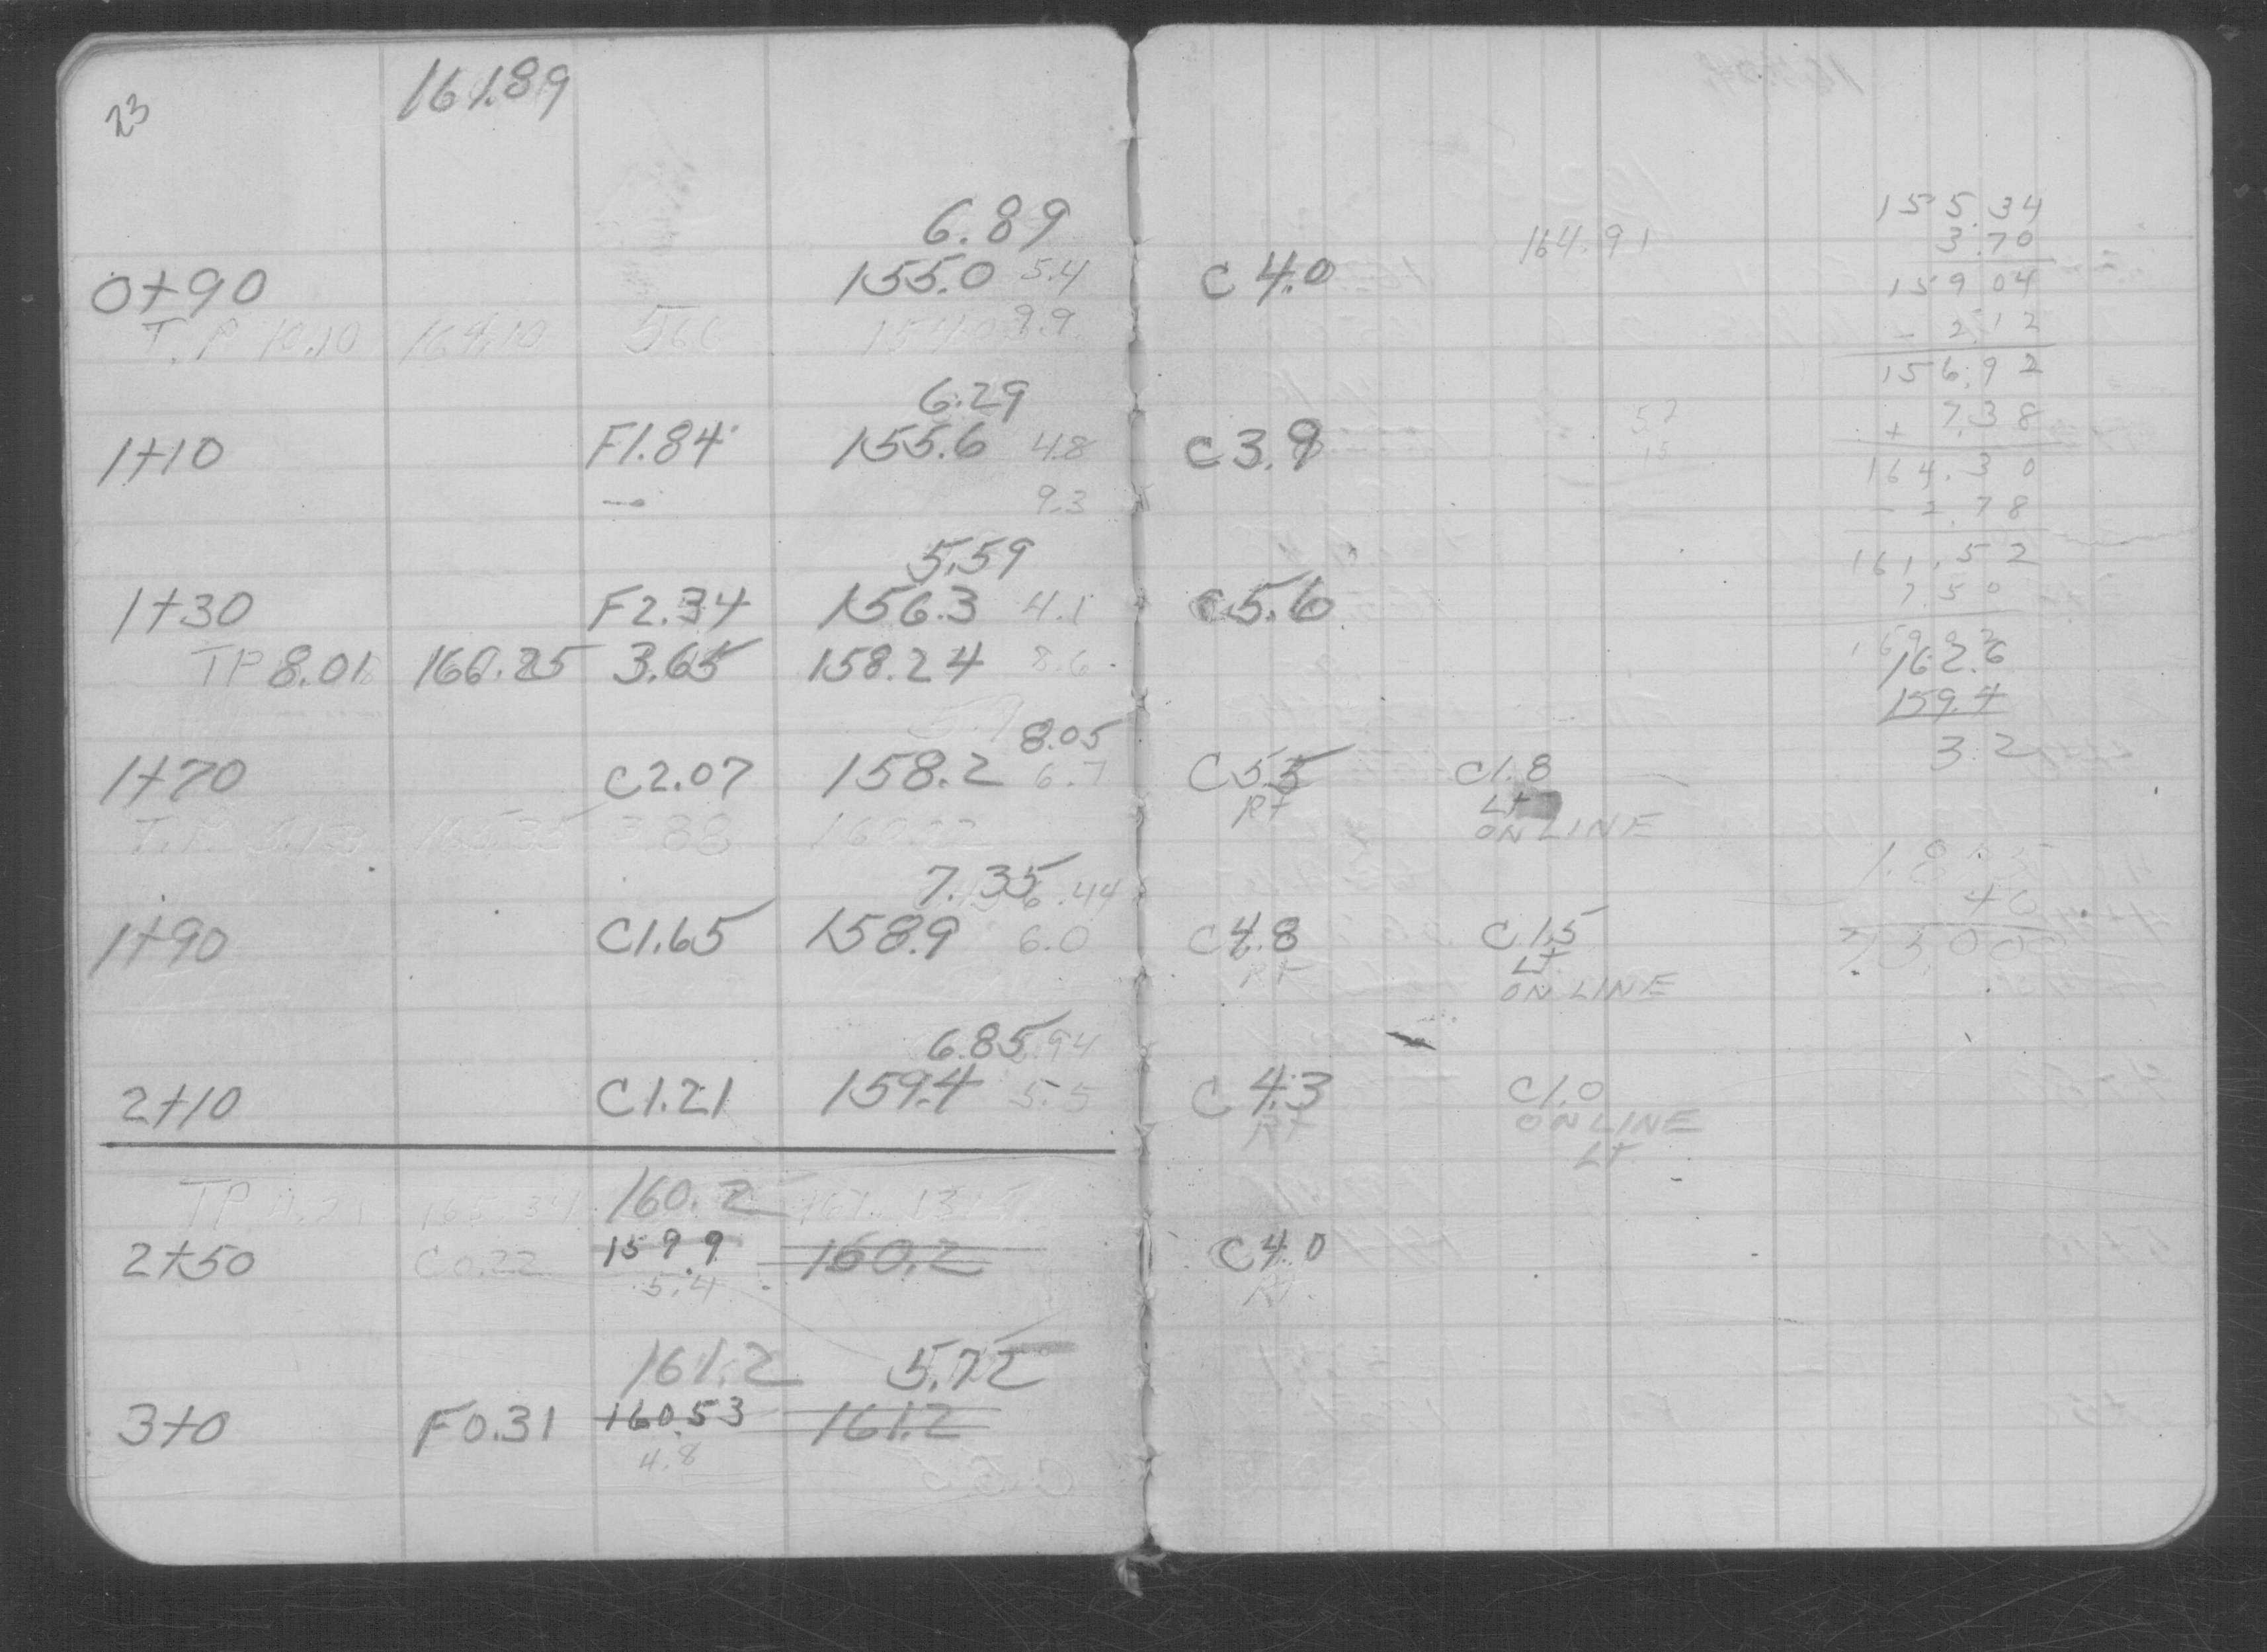 23
161.89
6.89
0+90 155.0 5.4 C 4.0 164.91
T.P 10.10 164.10 5.66 154.0 9.9
6.29
1+10 F1.84 155.6 4.8 C3.9
9.3
5.59
1+30 F2.34 156.3 4.1 C5.6
TP 8.01 166.25 3.65 158.24 8.6
8.05
1+70 C2.07 158.2 6.7 C5.5 C1.8
Rt Lt
ON LINE
3.88
7.35 6.44
1+90 C1.65 158.9 6.0 C4.8 C1.5
Rt Lt
ON LINE
6.85 5.94
2+10 C1.21 159.4 5.5 C 4.3 C1.0
Rt ON LINE
Lt
160.2
2+50 C0.22 159.9 160.2 C4.0
5.4 Rt.
161.2 5.72
3+0 F0.31 160.53 161.2
4.8
155.34
3.70
159 04
- 2.12
156.92
+ 7.38
164.30
- 2.78
161.52
7.50
162.6
159.4
3.2
40